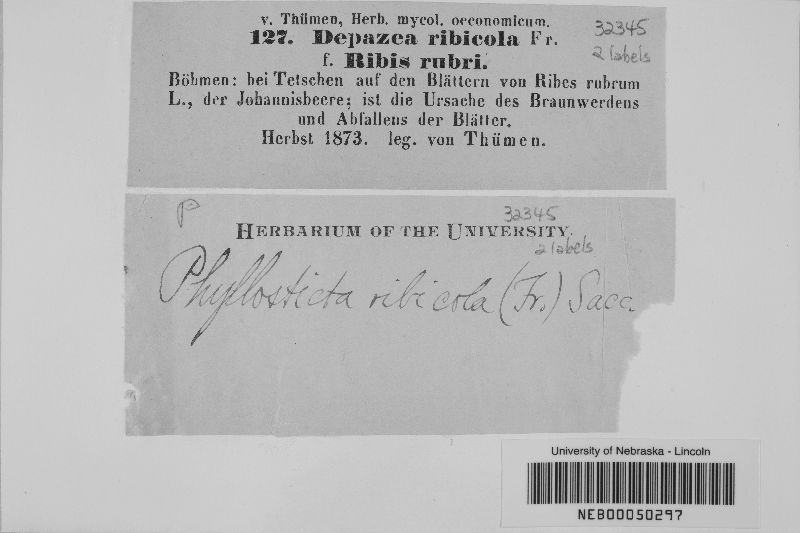 v. Thümen, Herb. mycol. oeconomicum.
127. Depazea ribicola Fr.
f. Ribis rubri.
Böhmen: bei Tetschen auf den Blättern von Ribes rubrum
L., der Johannisbeere; ist die Ursache des Braunwerdens
und Abfallens der Blätter.
Herbst 1873. leg. von Thümen.
32345
2 labels
P
32345
HERBARIUM OF THE UNIVERSITY.
2 labels
Phyllosticta ribicola (Fr.) Sacc.
University of Nebraska - Lincoln
NEB00050297